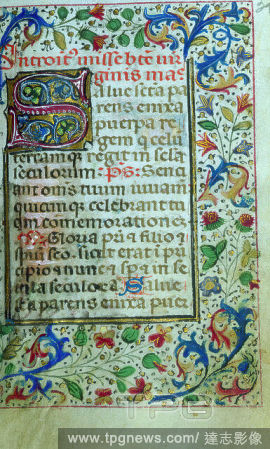 Introitus misse bte vir
ginis mar
Salve scta pa
rens enixa
puerpera re
gem q celu
terramq regit in secla
seculorum Ps Senci
ant omes tuum iuvam
quicunq celebrant tu
am comemoratione
Gloria pri & filio &
spui sco sicut erat i pri
cipio & nunc & sp & in se
cula seculoru Salve
scta parens enixa puer
TPG
www.tpgnews.com/ 達志影像